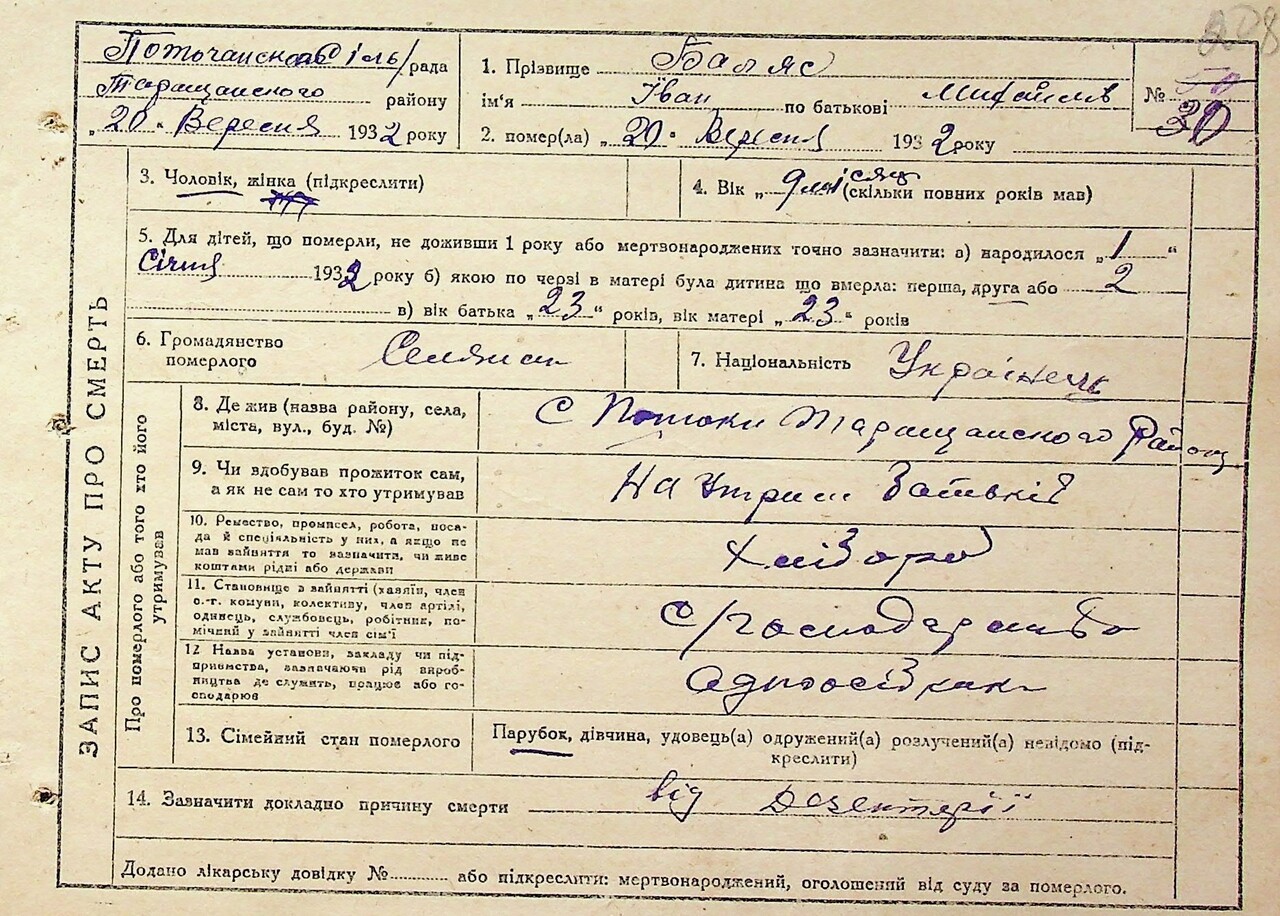 208
Поточанська Сіль/рада
Таращанского району
„20“ Вересня 1932 року
1. Прізвище Баляс
ім'я Іван по батькові Михайлів
2. помер(ла) „20“ Вересня 1932 року
№ 30
ЗАПИС АКТУ ПРО СМЕРТЬ
3. Чоловік, жінка (підкреслити)
4. Вік „ 9 місяц (скільки повних років мав)
5. Для дітей, що померли, не доживши 1 року або мертвонароджених точно зазначити: а) народилося „1“
Січня 1932 року б) якою по черзі в матері була дитина що вмерла: перша, друга або 2
в) вік батька „23“ років, вік матері „23“ років
6. Громадянство
померлого
Селянин
7. Національність Українець
Про померлого або того хто його
утримував
8. Де жив (назва району, села,
міста, вул., буд. №)
С Потоки Таращанского Району
9. Чи вдобував прожиток сам,
а як не сам то хто утримував
На Утрим Батьків
10. Ремество, промисел, робота, поса-
да й спеціальність у них, а якщо не
мав зайняття то зазначити, чи живе
коштами рідні або держави
Хлібороб
11. Становище в зайнятті (хазяїн, член
с.-г. комуни, колективу, член артілі,
одинець, службовець, робітник, по-
мічний у зайнятті член сім'ї
С/господарство
12 Назва установи, закладу чи під-
приємства, зазначаючи рід вироб-
ництва де служить, працює або го-
сподарює
Одноосібник
13. Сімейний стан померлого
Парубок, дівчина, удовець(а) одружений(а) розлучений(а) невідомо (під-
креслити)
14. Зазначити докладно причину смерти від Дезентерії
Додано лікарську довідку № або підкреслити: мертвонароджений, оголошений від суду за померлого.